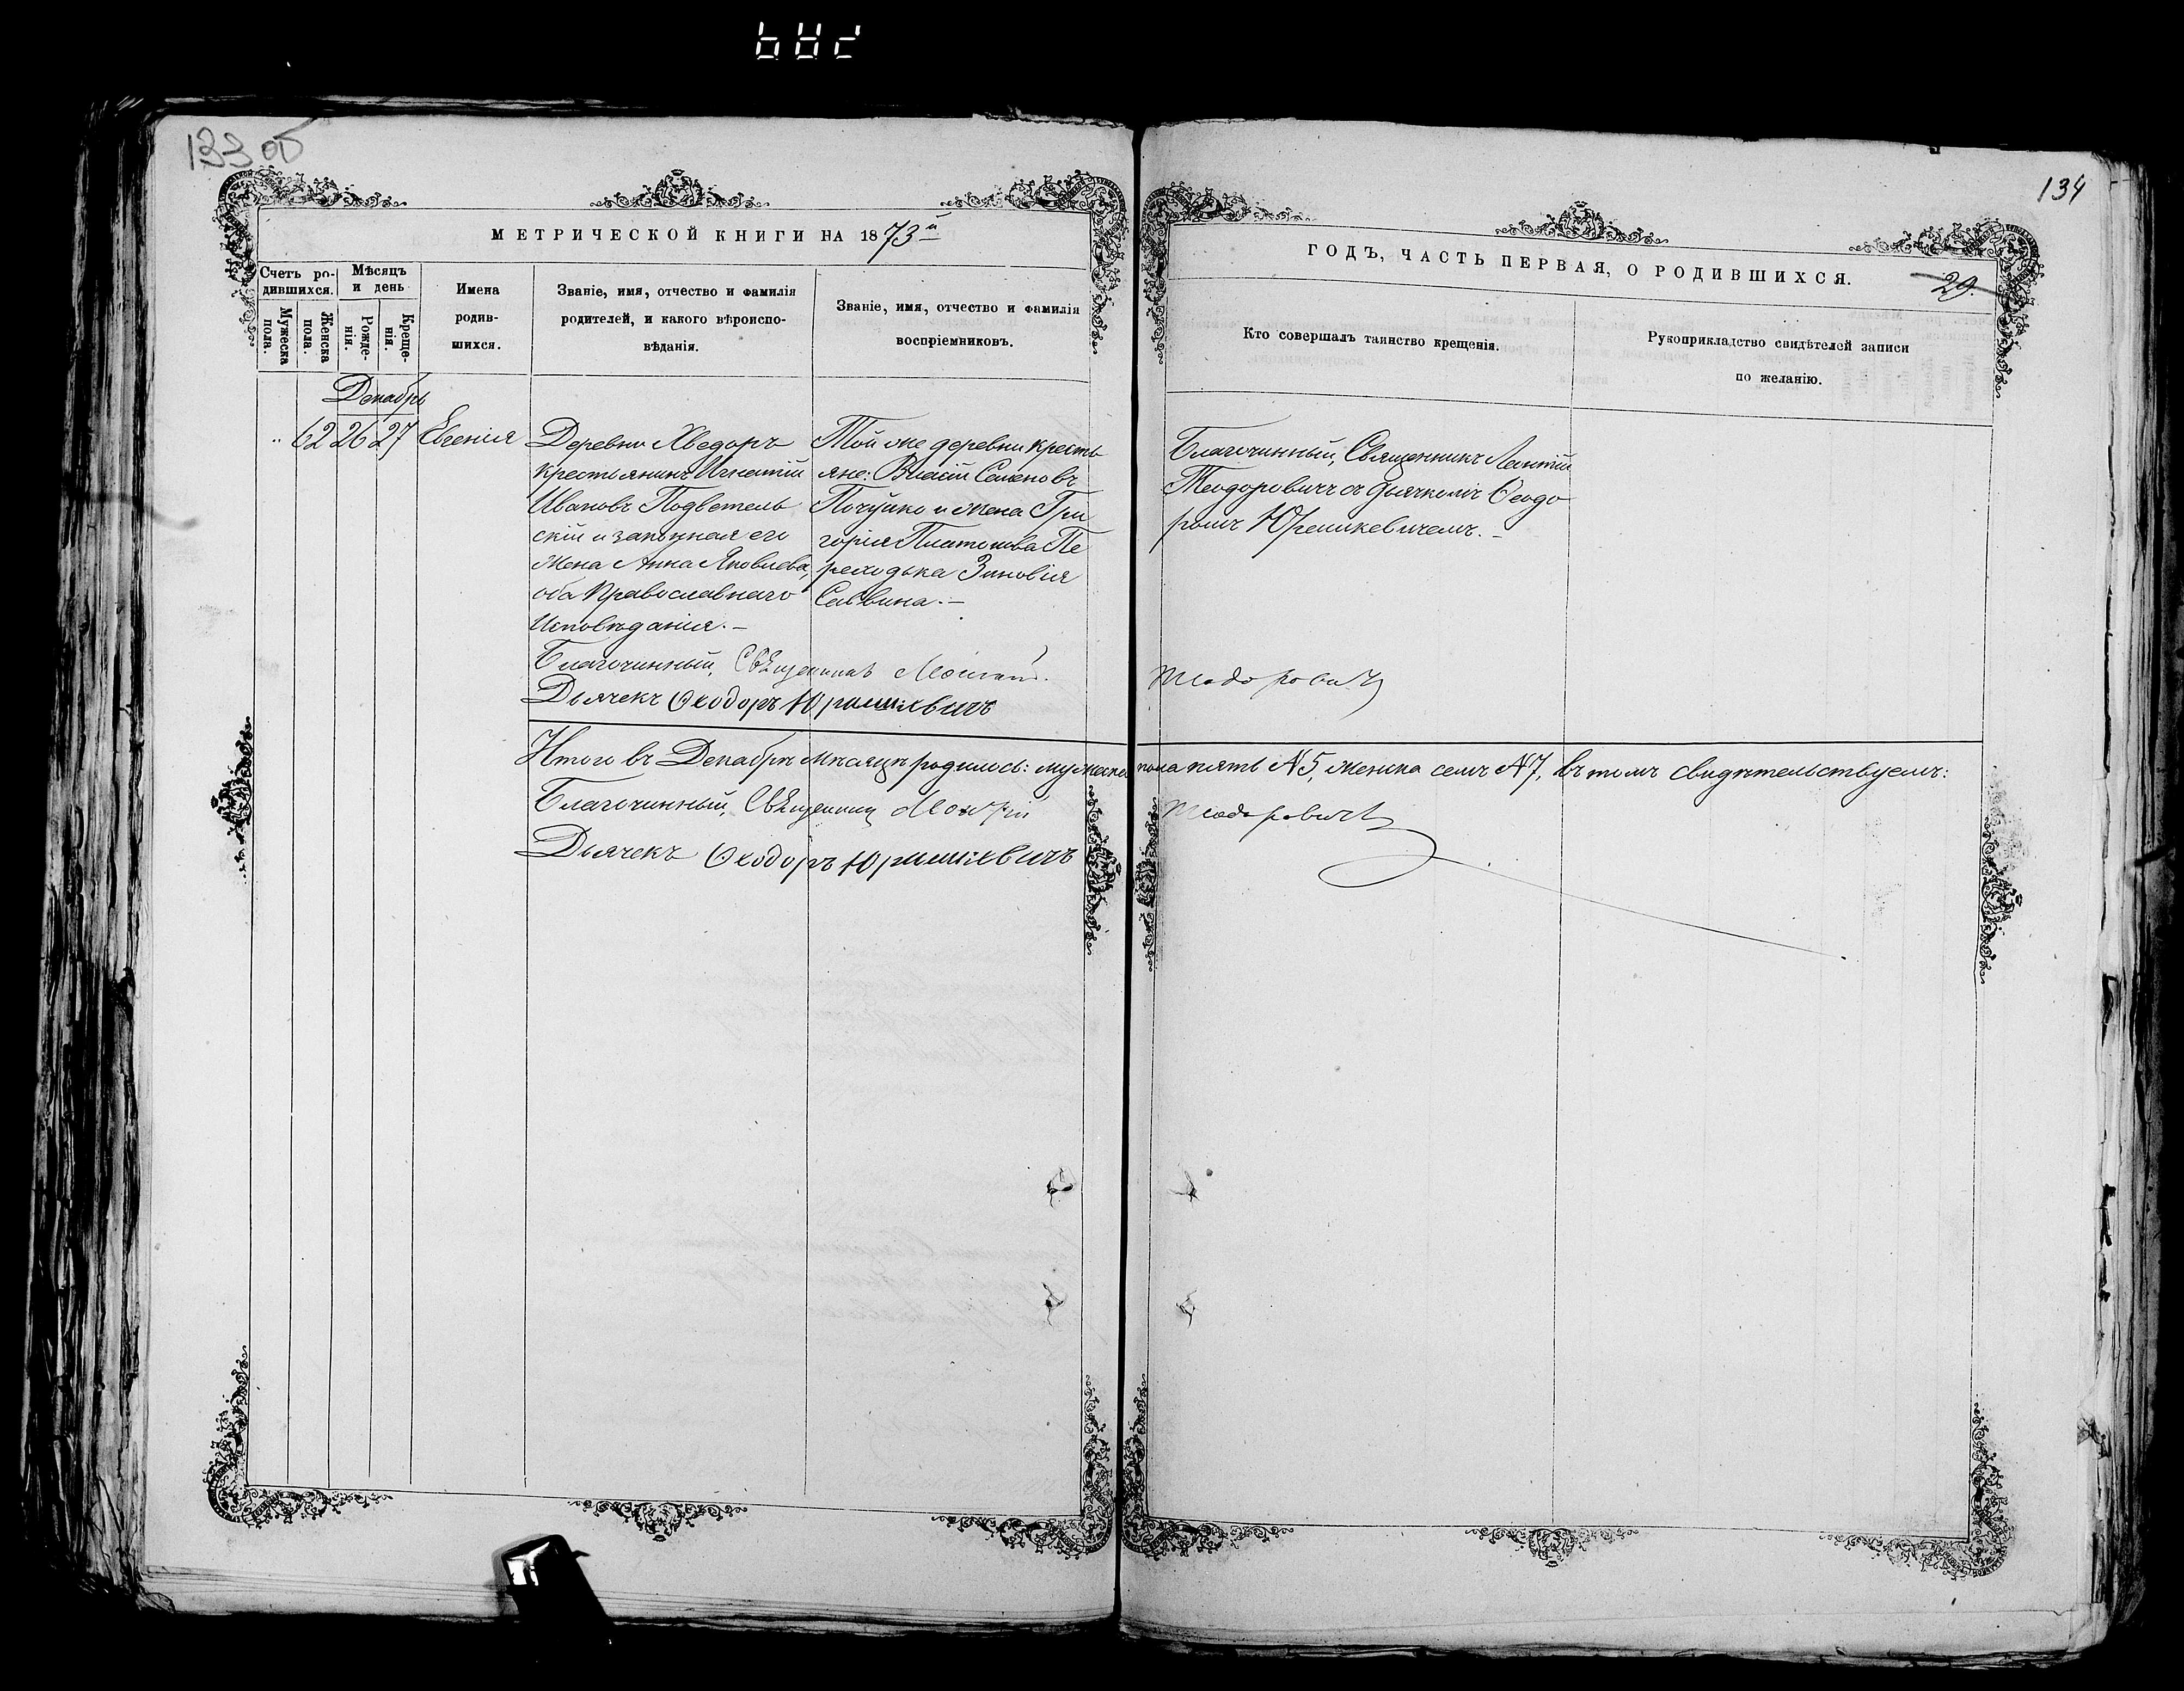 133 об
134
МЕТРИЧЕСКОЙ КНИГИ НА 1873й
ГОДЪ, ЧАСТЬ ПЕРВАЯ, О РОДИВШИХСЯ.
29.
Счетъ ро-
дившихся.
Мужеска
пола.
Женска
пола.
Мѣсяцъ
и день
Рожде-
нія.
Креще-
нія.
Имена
родив-
шихся.
Званіе, имя, отчество и фамилія
родителей, и какого вѣроиспо-
вѣданія.
Званіе, имя, отчество и фамилія
воспріемниковъ.
Кто совершалъ таинство крещенія.
Рукоприкладство свидѣтелей записи
по желанію.
Декабрь
62 26 27 Евгенія
Деревни Хведоръ
крестьянинъ Игнатій
Ивановъ Подветель
скій и законная его
жена Анна Яковлева,
оба Православнаго
Исповѣданія.—
Той же деревни кресть
яне: Власій Семеновъ
и жена Гри
горія Платонова Пе
реходька Зиновія
Саввина.—
Благочинный, Священникъ
Теодоровичъ съ дьячкомъ Ѳеодо
ромъ Юрашкевичемъ.—
Благочинный, Священникъ
Теодоровичъ
Дьячекъ Ѳеодоръ Юрашкевичъ
Итого въ Декабрѣ мѣсяцѣ родилось: мужеска пола пять №5, женска семь №7, въ томъ свидѣтельствуемъ:
Благочинный, Священникъ
Теодоровичъ
Дьячекъ Ѳеодоръ Юрашкевичъ